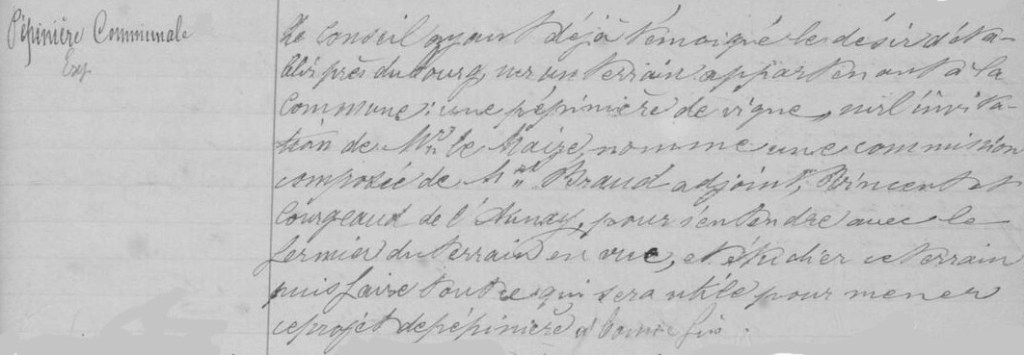 Pépinière Communale
Exp.
Le Conseil ayant déjà témoigné le désir d'éta-
blir près du bourg, sur un terrain appartenant à la
commune : une pépinière de vigne, sur l'invita-
tion de Mr le Maire, nomme une commission
composée de Mrs Braud adjoint, Vincent et
Courgeaud de l'Aunay, pour s'entendre avec le
fermier du terrain en vue, et étudier ce terrain
puis faire tout ce qui sera utile pour mener
ce projet de pépinière à bonne fin.